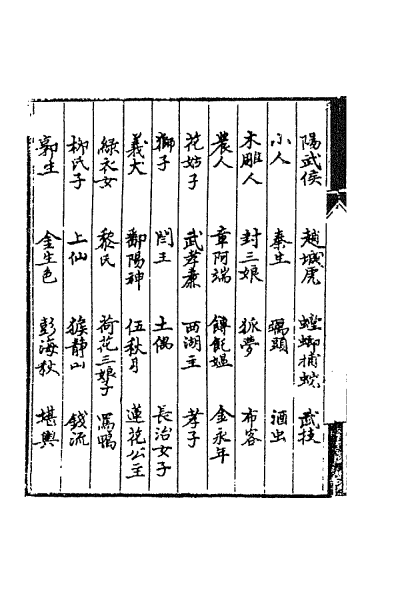 陽武侯 趙城虎 螳螂捕蛇 武技
小人 秦生 鴉頭 酒虫
木雕人 封三娘 狐夢 布客
農人 章阿端 餺飥媼 金永年
花姑子 武孝廉 西湖主 孝子
獅子 閆王 土偶 長治女子
義犬 鄱陽神 伍秋月 蓮花公主
綠衣女 黎氏 荷花三娘子 罵鴨
柳氏子 上仙 猴靜山 錢流
郭生 金生色 彭海秋 堪輿